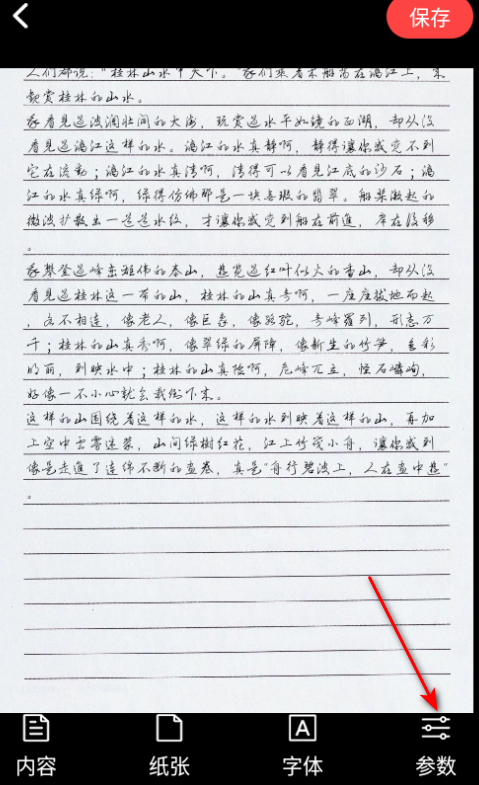 保存
人们都说："桂林山水甲天下。"我们乘着木船荡在漓江上，来
观赏桂林的山水。
我看见过波澜壮阔的大海，玩赏过水平如镜的西湖，却从没
看见过漓江这样的水。漓江的水真静啊，静得让你感觉不到
它在流动；漓江的水真清啊，清得可以看见江底的沙石；漓
江的水真绿啊，绿得仿佛那是一块无瑕的翡翠。船桨激起的
微波扩散出一道道水纹，才让你感觉到船在前进，岸在后移
。
我攀登过峰峦雄伟的泰山，游览过红叶似火的香山，却从没
看见过桂林这一带的山，桂林的山真奇啊，一座座拔地而起
，各不相连，像老人，像巨象，像骆驼，奇峰罗列，形态万
千；桂林的山真秀啊，像翠绿的屏障，像新生的竹笋，色彩
明丽，倒映水中；桂林的山真险啊，危峰兀立，怪石嶙峋，
好像一不小心就会栽倒下来。
这样的山围绕着这样的水，这样的水倒映着这样的山，再加
上空中云雾迷蒙，山间绿树红花，江上竹筏小舟，让你感到
像是走进了连绵不断的画卷，真是"舟行碧波上，人在画中游"
。
内容
纸张
字体
参数